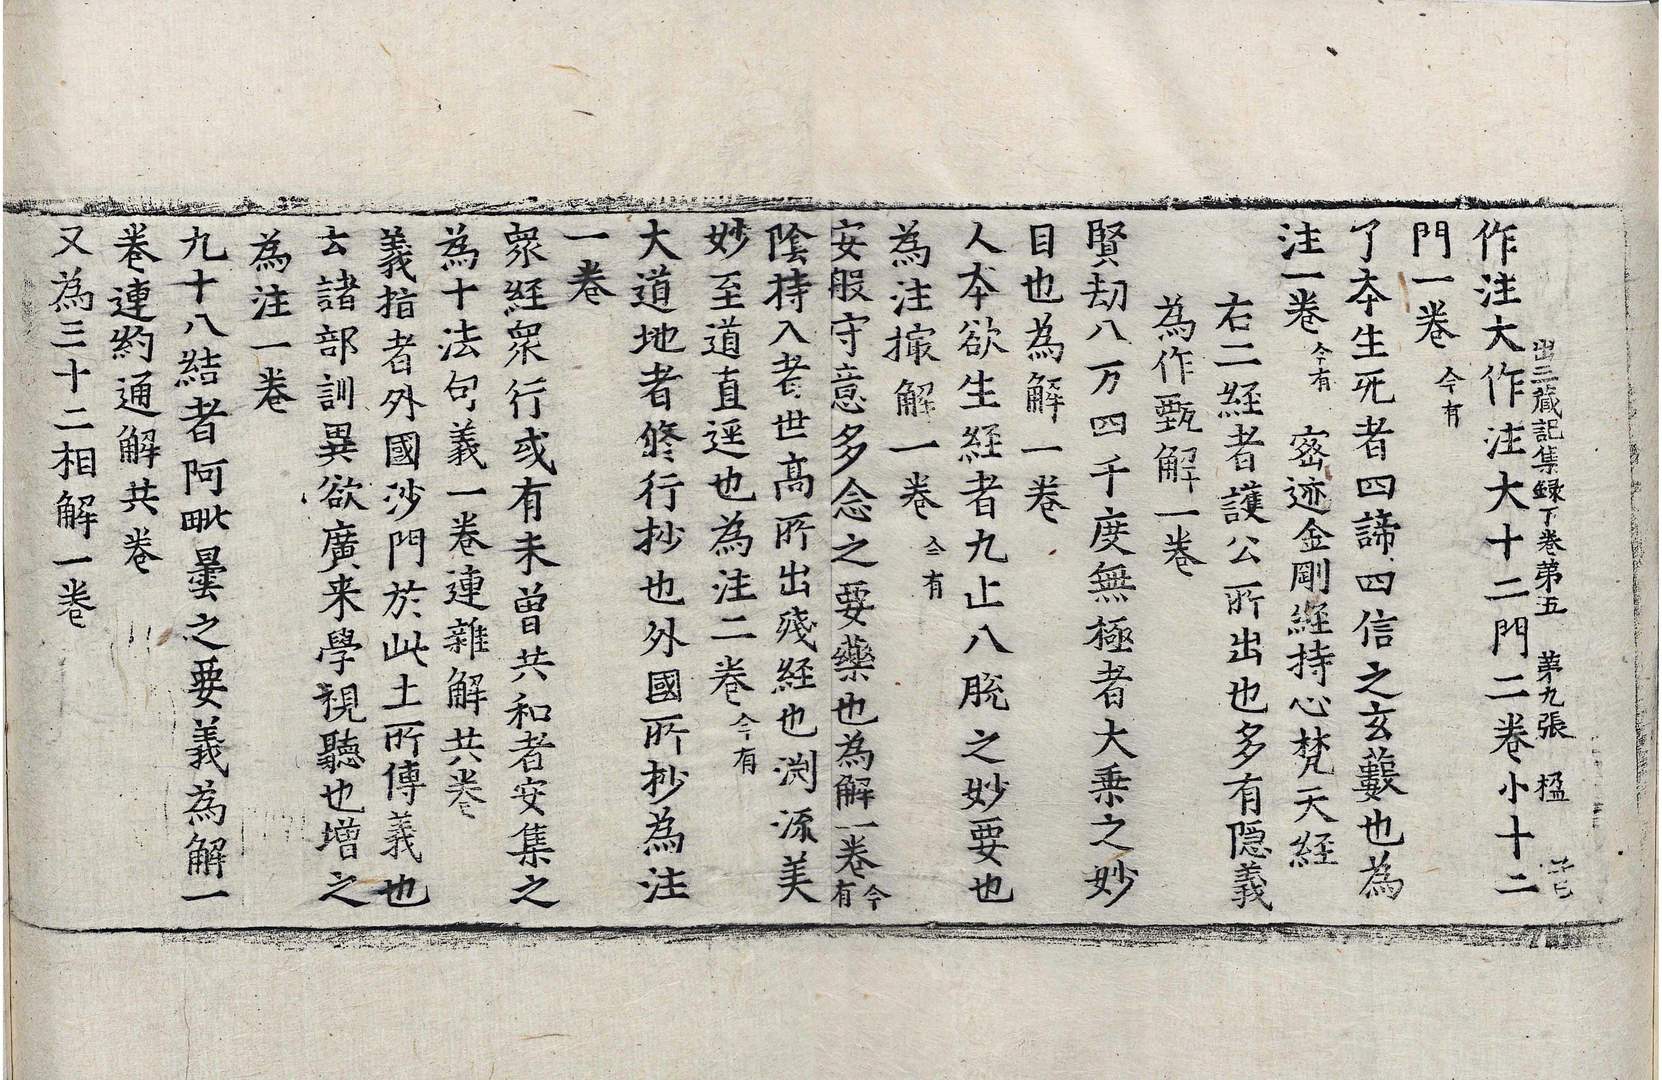 出三藏記集録下卷第五　第九張　楹
作注大作注大十二門二卷小十二
門一卷今有
了夲生死者四諦四信之玄藪也為
注一卷今有　宻迹金剛経持心梵天経
右二経者護公所出也多有隠義
為作甄解一卷
賢刧八万四千度無極者大乗之妙
目也為解一卷
人夲欲生経者九止八脫之妙要也
為注撮解一卷今有
安般守意多念之要藥也為解一卷今有
陰持入者世高所出殘経也渕源美
妙至道直逕也為注二卷今有
大道地者修行抄也外國所抄為注
一卷
衆経衆行或有未曽共和者安集之
為十法句義一卷連雜解共卷
義指者外國沙門於此土所傳義也
云諸部訓異欲廣来學視聽也增之
為注一卷
九十八結者阿毗曇之要義為解一
卷連約通解共卷
又為三十二相解一卷